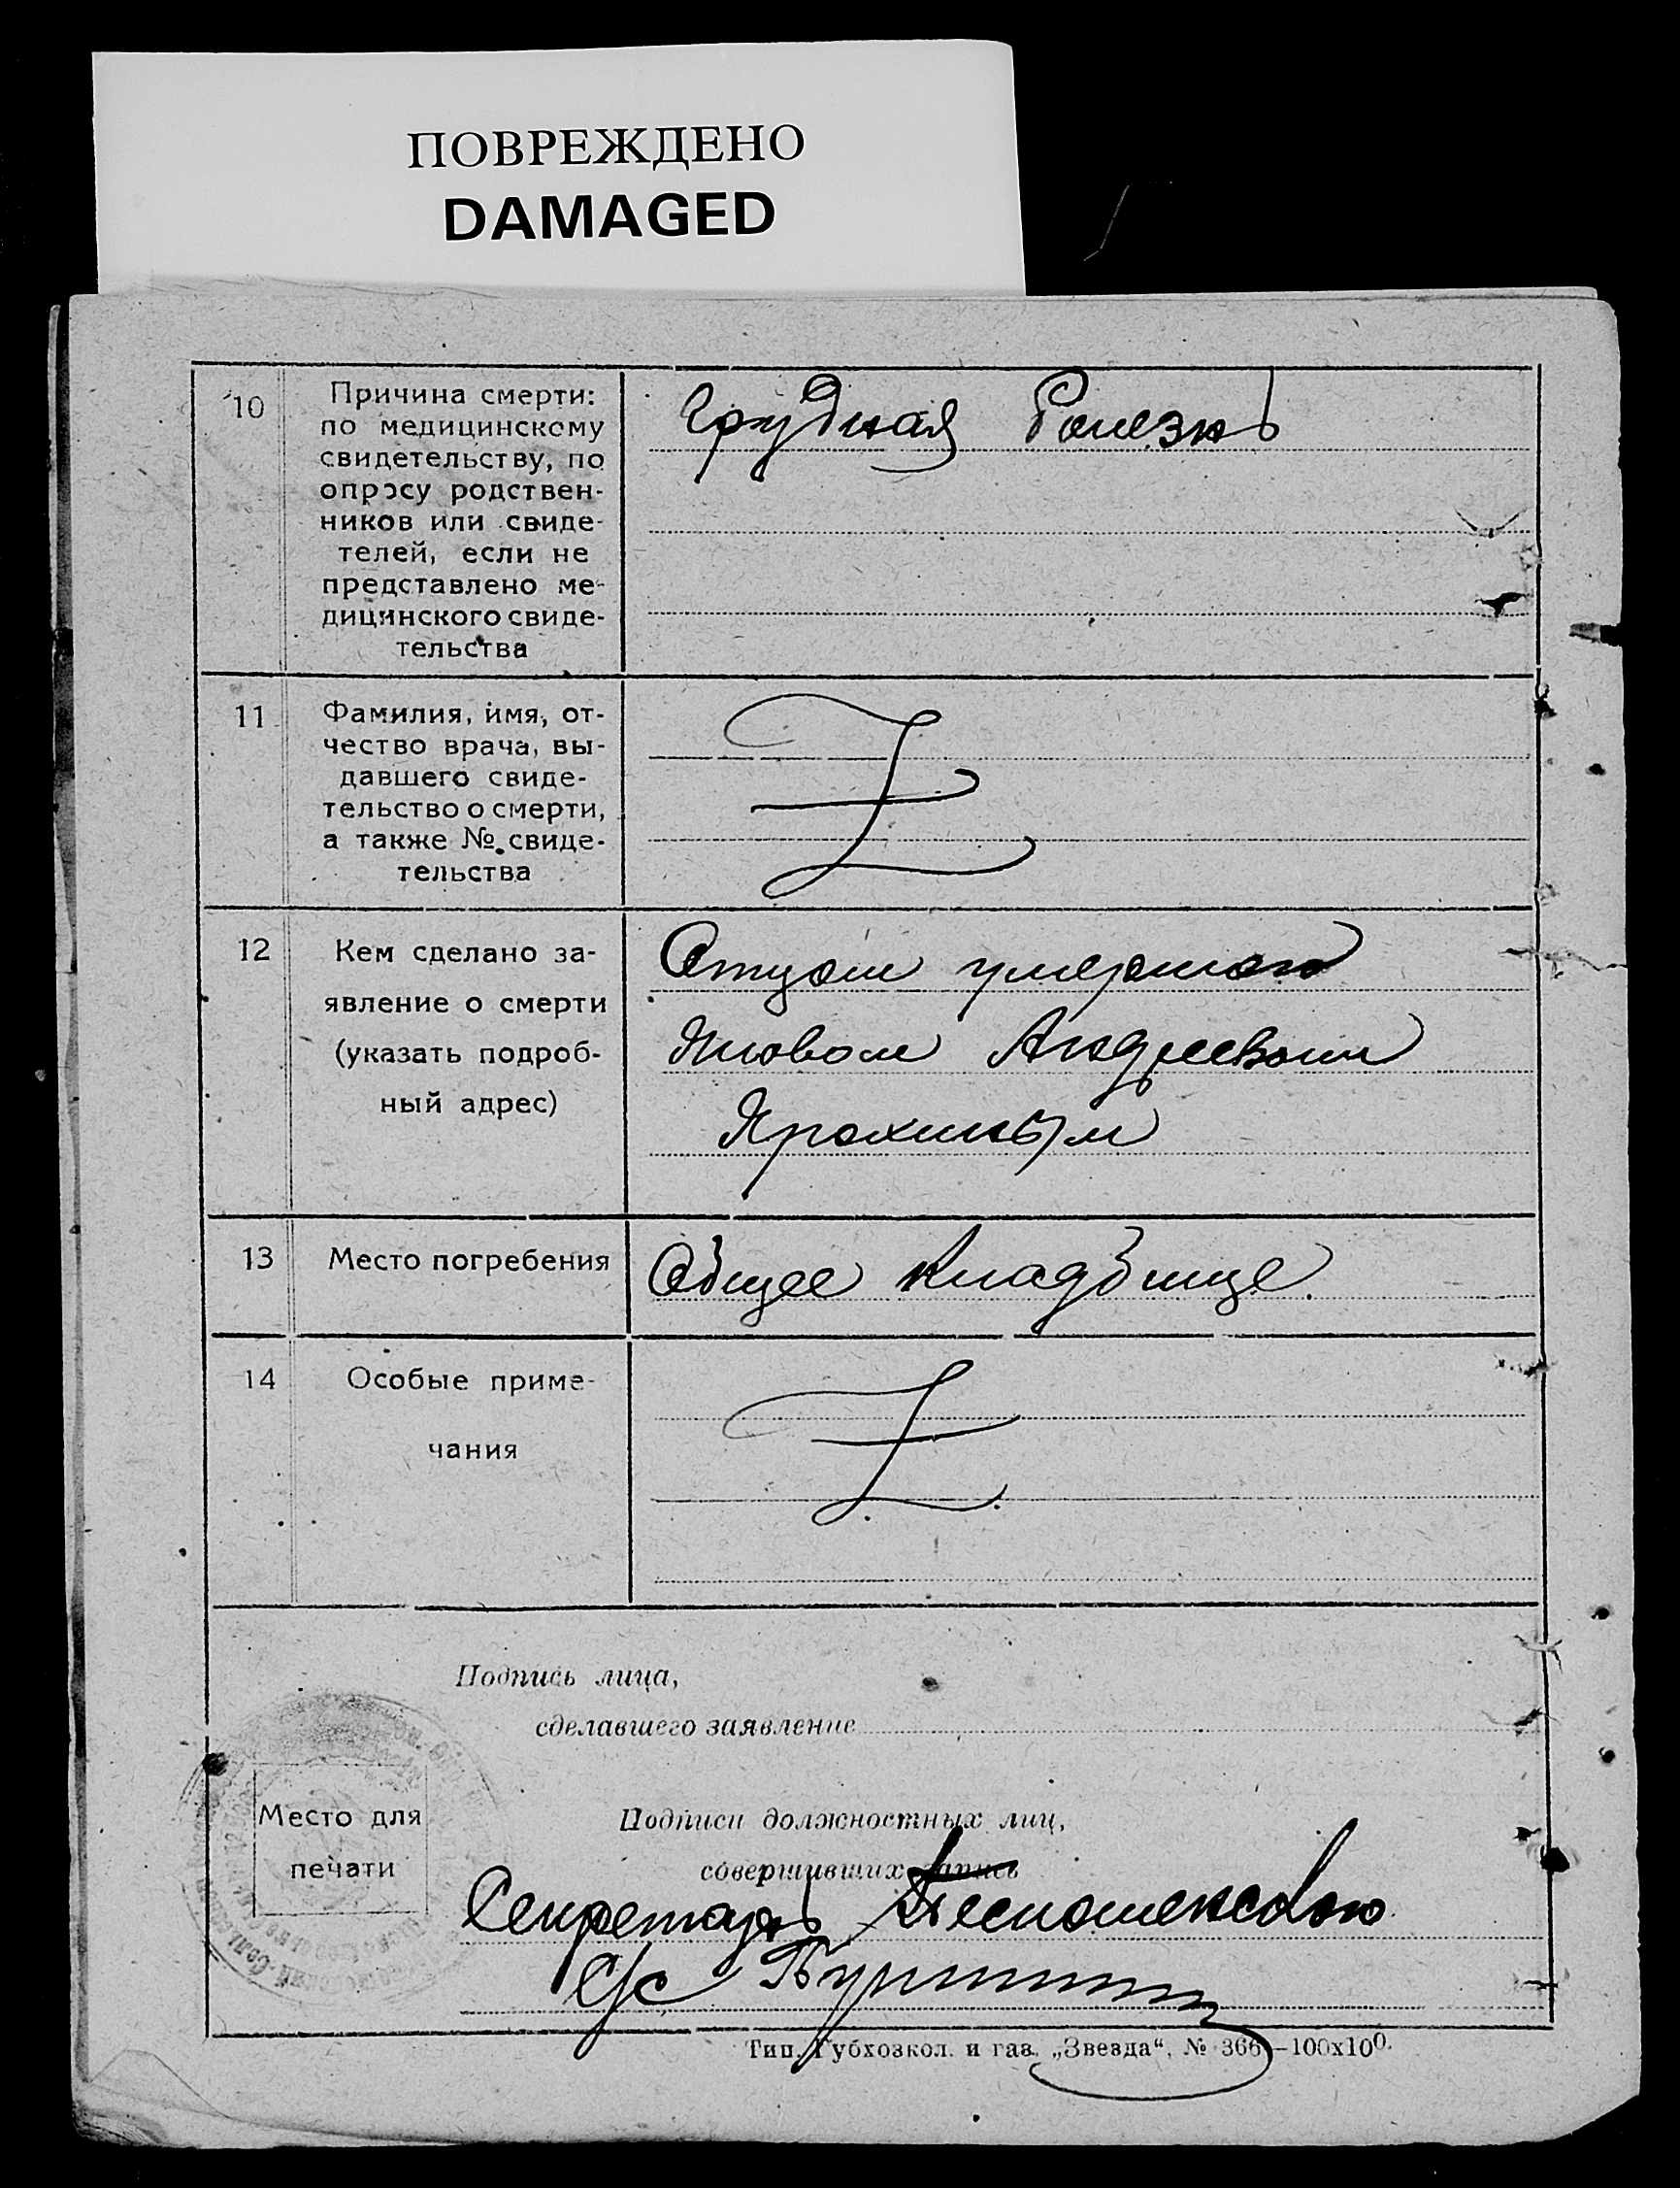 ПОВРЕЖДЕНО
DAMAGED
10
Причина смерти:
по медицинскому
свидетельству, по
опросу родствен-
ников или свиде-
телей, если не
представлено ме-
дицинского свиде-
тельства
Грудная болезнь
11
Фамилия, имя, от-
чество врача, вы-
давшего свиде-
тельство о смерти,
а также № свиде-
тельства
Z
12
Кем сделано за-
явление о смерти
(указать подроб-
ный адрес)
Отцом умершого
Яковом Андреевым
Ярохиным
13
Место погребения
Общее кладбище.
14
Особые приме-
чания
Z
Подпись лица,
сделавшего заявление
Место для
печати
Подписи должностных лиц,
совершивших запись
Секретарь
с/с
Тип. Губхозкол. и газ. „Звезда“, № 366—100х100.